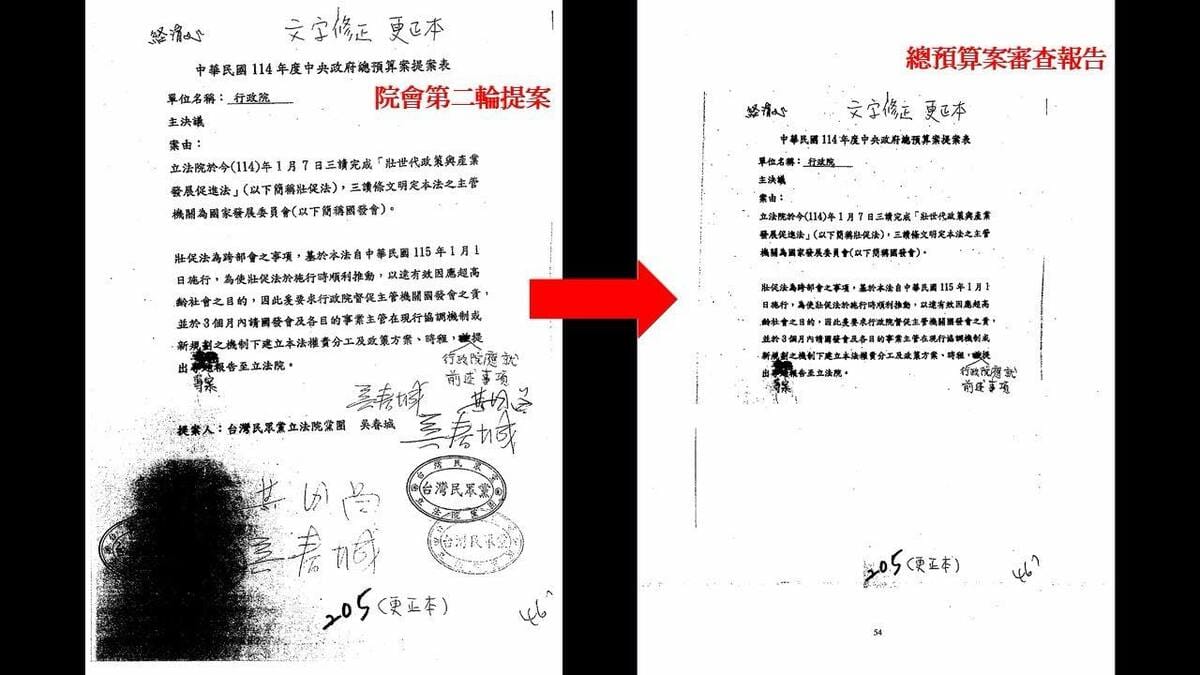 經濟
文字修正 更正本
中華民國 114 年度中央政府總預算案提案表
院會第二輪提案
單位名稱：行政院
主決議
案由：
立法院於今(114)年 1 月 7 日三讀完成「壯世代政策與產業
發展促進法」(以下簡稱壯促法)，三讀條文明定本法之主管
機關為國家發展委員會(以下簡稱國發會)。
壯促法為跨部會之事項，基於本法自中華民國 115 年 1 月 1
日施行，為使壯促法於施行時順利推動，以達有效因應超高
齡社會之目的，因此爰要求行政院督促主管機關國發會之責，
並於 3 個月內請國發會及各目的事業主管在現行協調機制或
新規劃之機制下建立本法權責分工及政策方案、時程，提
行政院應就
前述事項
出專題報告至立法院。
專案
吳春城
吳春城
提案人：台灣民眾黨立法院黨團 吳春城
台灣民眾黨
立法院黨團
台灣民眾黨
吳春城
205(更正本)
總預算案審查報告
經濟
文字修正 更正本
中華民國 114 年度中央政府總預算案提案表
單位名稱：行政院
主決議
案由：
立法院於今(114)年 1 月 7 日三讀完成「壯世代政策與產業
發展促進法」(以下簡稱壯促法)，三讀條文明定本法之主管
機關為國家發展委員會(以下簡稱國發會)。
壯促法為跨部會之事項，基於本法自中華民國 115 年 1 月 1
日施行，為使壯促法於施行時順利推動，以達有效因應超高
齡社會之目的，因此爰要求行政院督促主管機關國發會之責，
並於 3 個月內請國發會及各目的事業主管在現行協調機制或
新規劃之機制下建立本法權責分工及政策方案、時程，提
行政院應就
前述事項
出專題報告至立法院。
專案
205(更正本)
54